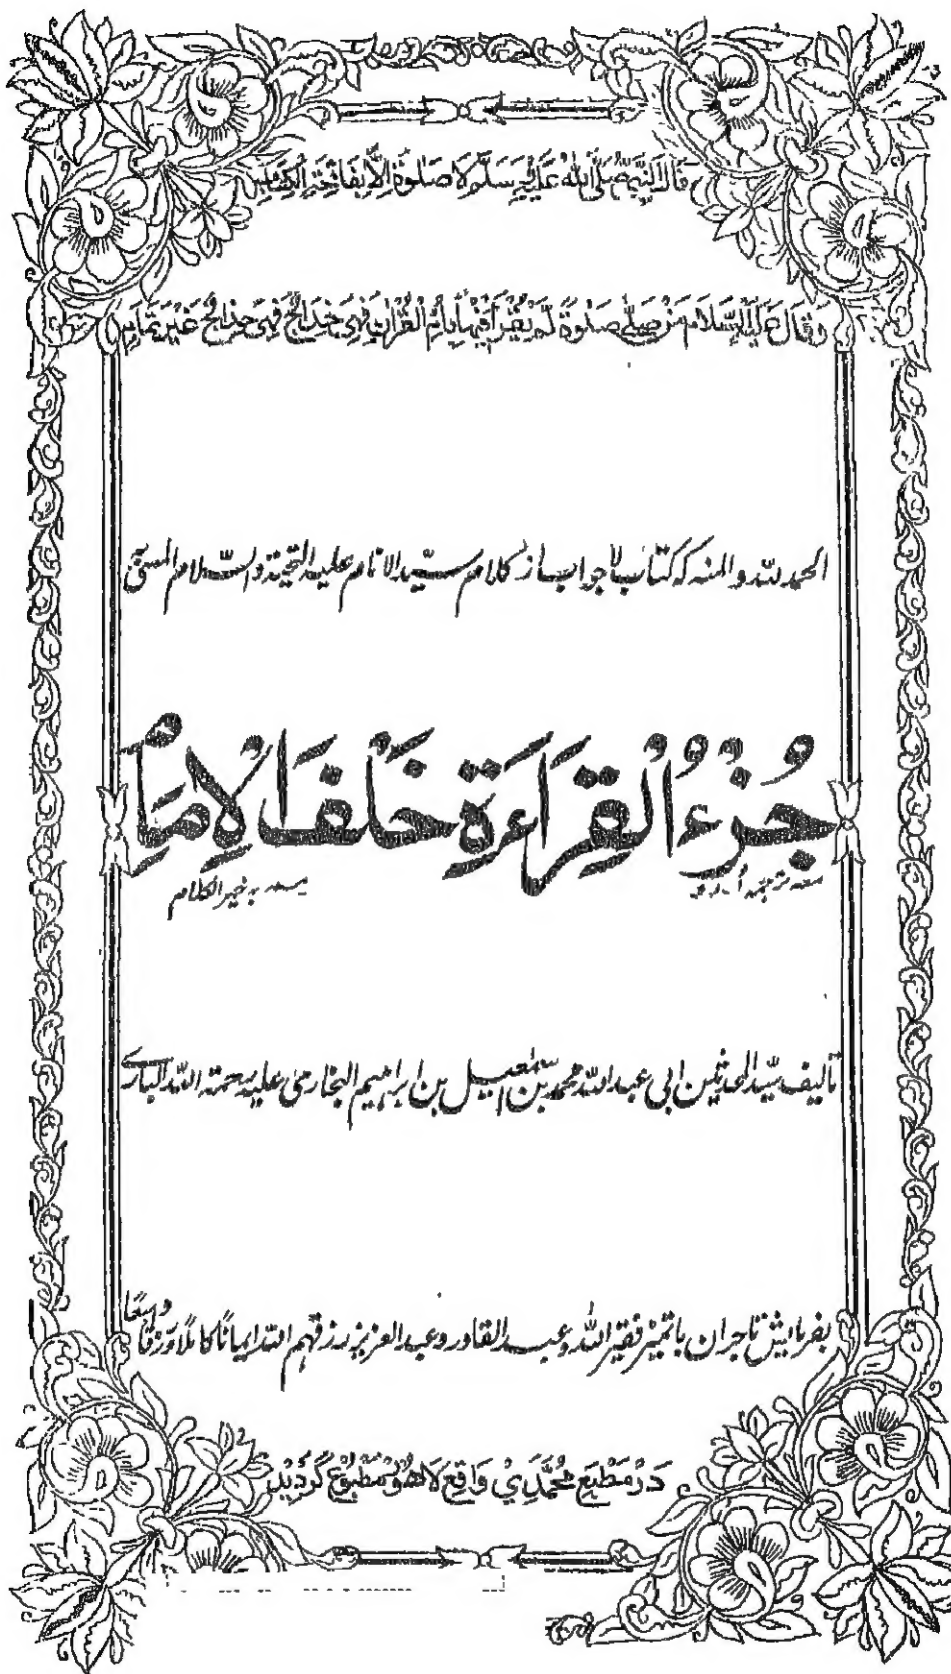 قَالَ النَّبِيُّ صَلَّى اللهُ عَلَيْهِ وَسَلَّمَ لَا صَلٰوةَ اِلَّا بِفَاتِحَةِ الْكِتَابِ
وَقَالَ عَلَيْهِ السَّلَامُ مَنْ صَلّٰى صَلٰوةً لَمْ يَقْرَأْ فِيْهَا بِاُمِّ الْقُرْاٰنِ فَهِيَ خِدَاجٌ فَهِيَ خِدَاجٌ غَيْرُ تَمَامٍ
الحمد للہ والمنہ کہ کتاب لاجواب از کلام سیّد الانام علیہ التحیتہ والسّلام المسمّیٰ بہ
جُزْءُ الْقِرَاءَةِ خَلْفَ الْاِمَامِ
معہ ترجمہ اُردو
مسمے بہ خیر الکلام
تالیف سیّد المحدثین ابی عبد اللہ محمد بن اسمٰعیل بن ابراہیم البخاری علیہ رحمتہ اللہ الباری
بفرمایش تاجران باتمیز فقیر اللہ و عبد القادر و عبد العزیز رزقہم اللہ ایمانًا کاملًا و رزقًا وّاسعًا
دَرْ مَطْبَعِ مُحَمَّدِيْ وَاقِعْ لَاهَوْرْ مَطْبُوْعْ گَرْدِيْدْ